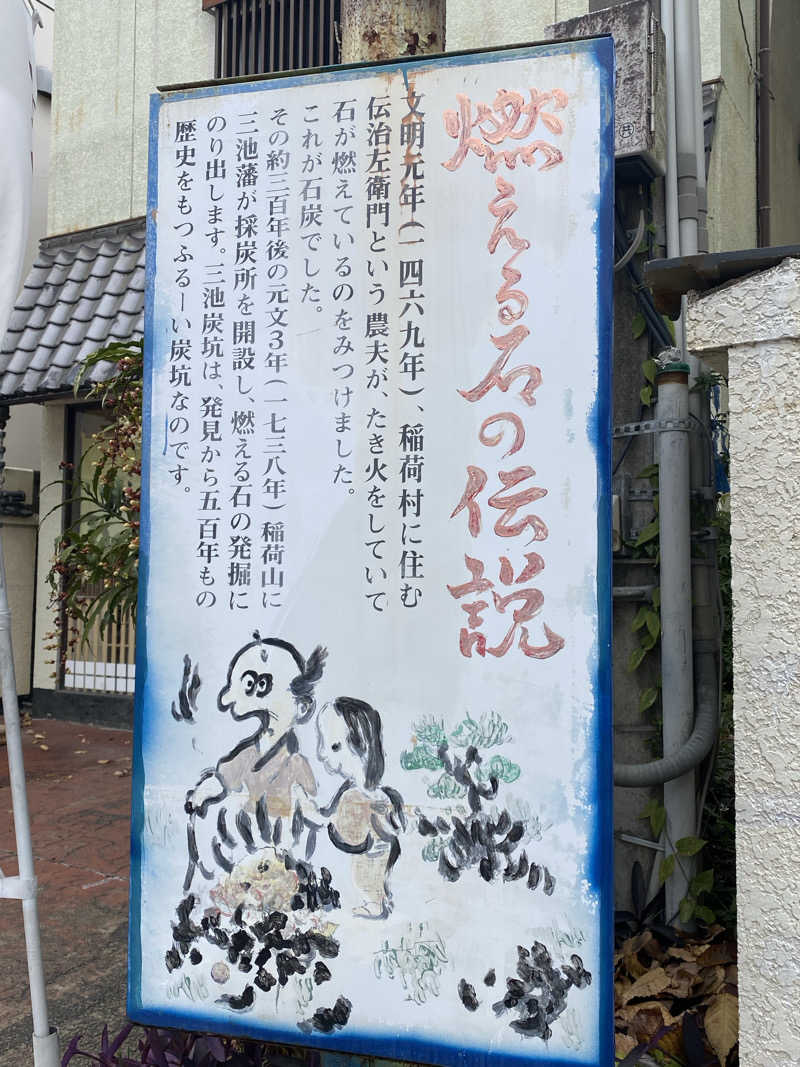 燃える石の伝説
文明元年(一四六九年)、稲荷村に住む
伝治左衛門という農夫が、たき火をしていて
石が燃えているのをみつけました。
これが石炭でした。
その約三百年後の元文3年(一七三八年)稲荷山に
三池藩が採炭所を開設し、燃える石の発掘に
のり出します。三池炭坑は、発見から五百年もの
歴史をもつふるーい炭坑なのです。